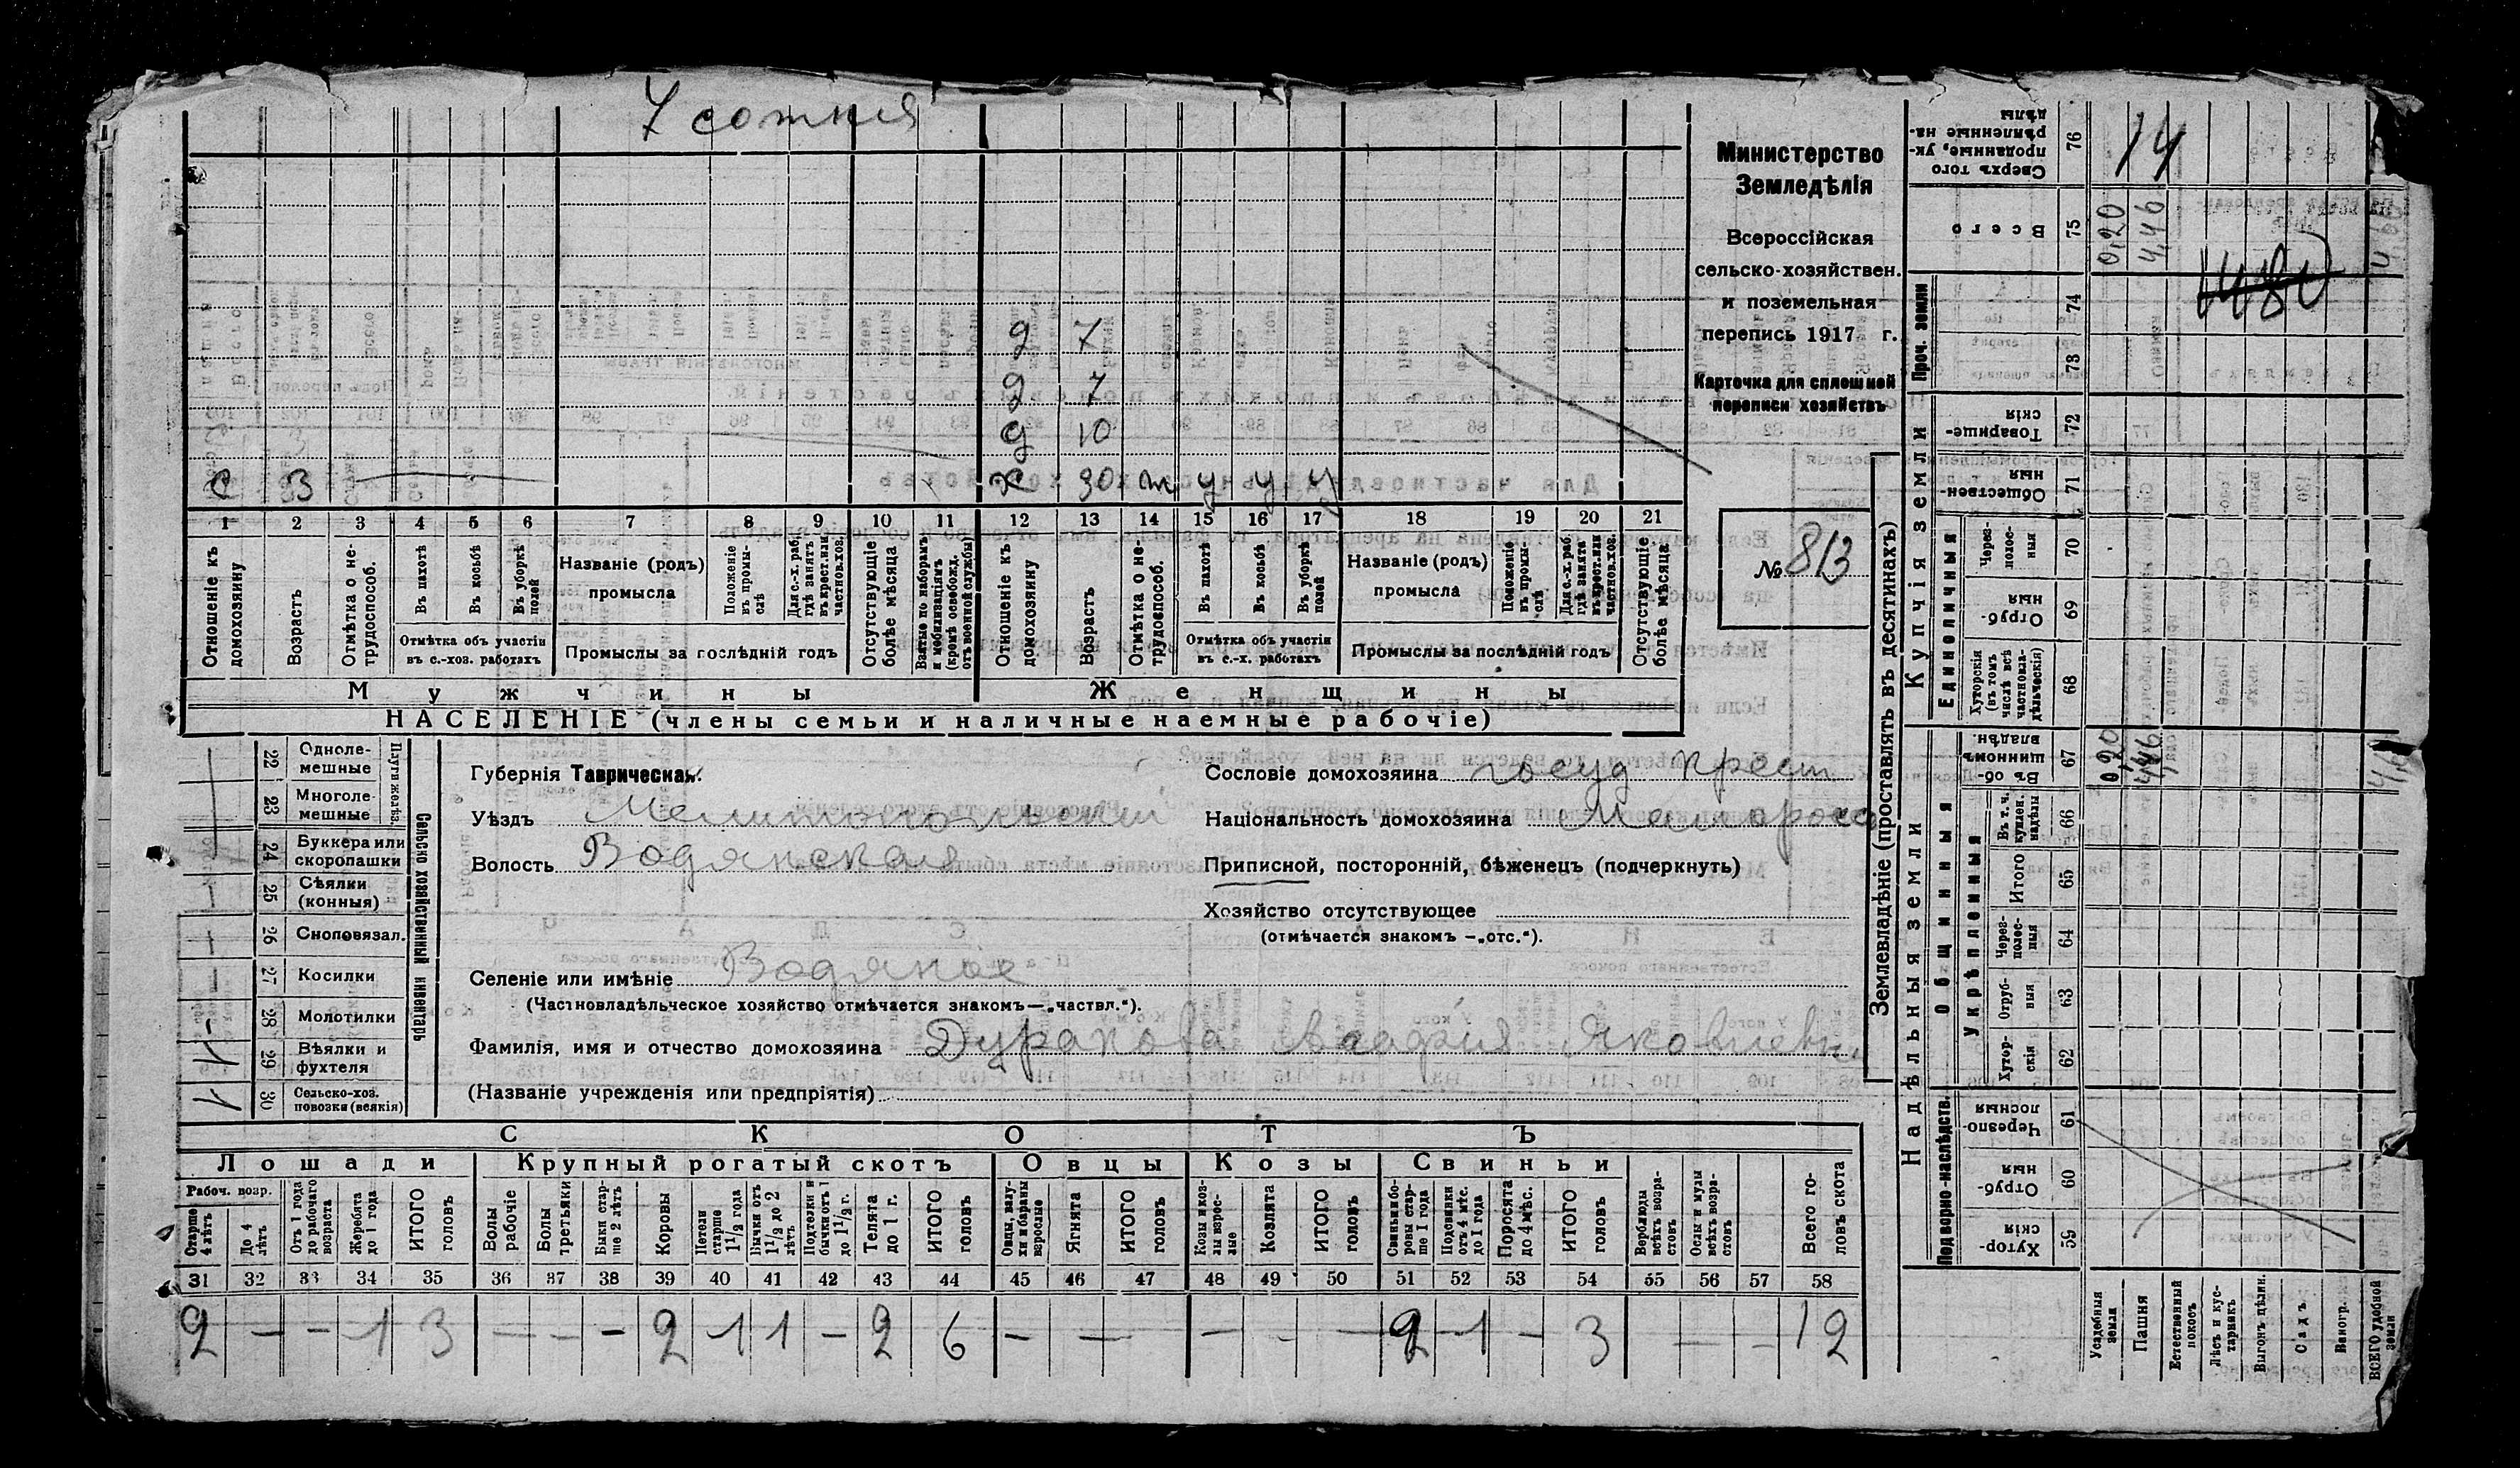 7 сотня
Министерство
Земледѣлія
Всероссійская
сельско-хозяйствен.
и поземельная
перепись 1917 г.
Карточка для сплошной
переписи хозяйствъ
№ 813
д 7
д 7
д 10
с 3 х 30 у у у
1 2 3 4 5 6 7 8 9 10 11 12 13 14 15 16 17 18 19 20 21
Отношеніе къ домохозяину
Возрастъ
Отмѣтка о не-трудоспособ.
Въ пахотѣ
Въ косьбѣ
Въ уборкѣ полей
Отмѣтка объ участіи
въ с.-хоз. работахъ
Названіе (родъ)
промысла
Положеніе въ промы-слѣ
Для с.-х. раб. гдѣ занятъ въ крест. или частнов. хоз.
Промыслы за послѣдній годъ
Отсутствующіе болѣе мѣсяца
Взятые по наборамъ и мобилизаціямъ (кромѣ освобожд. отъ военной службы)
Отношеніе къ домохозяину
Возрастъ
Отмѣтка о не-трудоспособ.
Въ пахотѣ
Въ косьбѣ
Въ уборкѣ полей
Отмѣтка объ участіи
въ с.-х. работахъ
Названіе (родъ)
промысла
Положеніе въ промы-слѣ
Для с.-х. раб. гдѣ занята въ крест. или частнов. хоз.
Промыслы за послѣдній годъ
Отсутствующіе болѣе мѣсяца
Мужчины Женщины
НАСЕЛЕНІЕ (члены семьи и наличные наемные рабочіе)
Сельско хозяйственный инвентарь
Плуги желѣз.
22 Одноле-мешные
23 Многоле-мешные
24 Буккера или скоропашки
25 Сѣялки (конныя)
26 Сноповязал.
27 Косилки
28 Молотилки
29 Вѣялки и фухтеля 1
30 Сельско-хоз. повозки (всякія) 1
Губернія Таврическая.
Уѣздъ Мелитопольскій
Волость Водянская
Сословіе домохозяина госуд крест
Національность домохозяина Малоросс
Приписной, посторонній, бѣженецъ (подчеркнуть)
Хозяйство отсутствующее
(отмѣчается знакомъ —„отс.“).
Селеніе или имѣніе Водяное
(Частновладѣльческое хозяйство отмѣчается знакомъ—„частвл.“).
Фамилія, имя и отчество домохозяина Дуракова Яковлевна
(Названіе учрежденія или предпріятія)
СКОТЪ
Лошади Крупный рогатый скотъ Овцы Козы Свиньи
Рабоч. возр.
Старше 4 лѣтъ
До 4 лѣтъ
Отъ 1 года до рабочаго возраста
Жеребята до 1 года
ИТОГО головъ
Волы рабочіе
Волы третьяки
Быки стар-ше 2 лѣтъ
Коровы
Нетели старше 1½ года
Бычки отъ 1½ до 2 лѣтъ
Подтелки и бычки отъ 1 до 1½ г.
Телята до 1 г.
ИТОГО головъ
Овцы, валу-хи и бараны взрослые
Ягнята
ИТОГО головъ
Козы и коз-лы взрос-лые
Козлята
ИТОГО головъ
Свиньи и бо-ровы стар-ше 1 года
Подсвинки отъ 4 мѣс. до 1 года
Поросята до 4 мѣс.
ИТОГО головъ
Верблюды всѣхъ возра-стовъ
Ослы и мулы всѣхъ возра-стовъ
Всего го-ловъ скота
31 32 33 34 35 36 37 38 39 40 41 42 43 44 45 46 47 48 49 50 51 52 53 54 55 56 57 58
2 — — 1 3 — — — 2 1 1 — 2 6 — — — — — 2 1 — 3 — — 12
Землевладѣніе (проставлять въ десятинахъ)
Надѣльныя земли
Купчія земли
Проч. земли
Подворно-наслѣдств.
Общинныя
Укрѣпленныя
Единоличныя
Сверхъ того проданные, ук-рѣпленные на-дѣлы 76 14
Всего 75 0,20 4,46
74
73
Товарище-скія 72
Обществен-ныя 71
Через-полос-ныя 70
Отруб-ныя 69
Хуторскія (въ томъ числѣ всѣ частновла-дѣльческія) 68
Въ об-щинномъ владѣн. 67 0,20 4,46
Въ т. ч. куплен. надѣлы 66
Итого 65
Через-полос-ныя 64
Отруб-ныя 63
Хутор-скія 62
Черезпо-лосныя 61
Отруб-ныя 60
Хутор-скія 59
Усадебныя земли
Пашня
Естественный покосъ
Лѣсъ и кус-тарникъ
Выгонъ цѣлин.
Садъ
Виногр.
ВСЕГО удобной земли